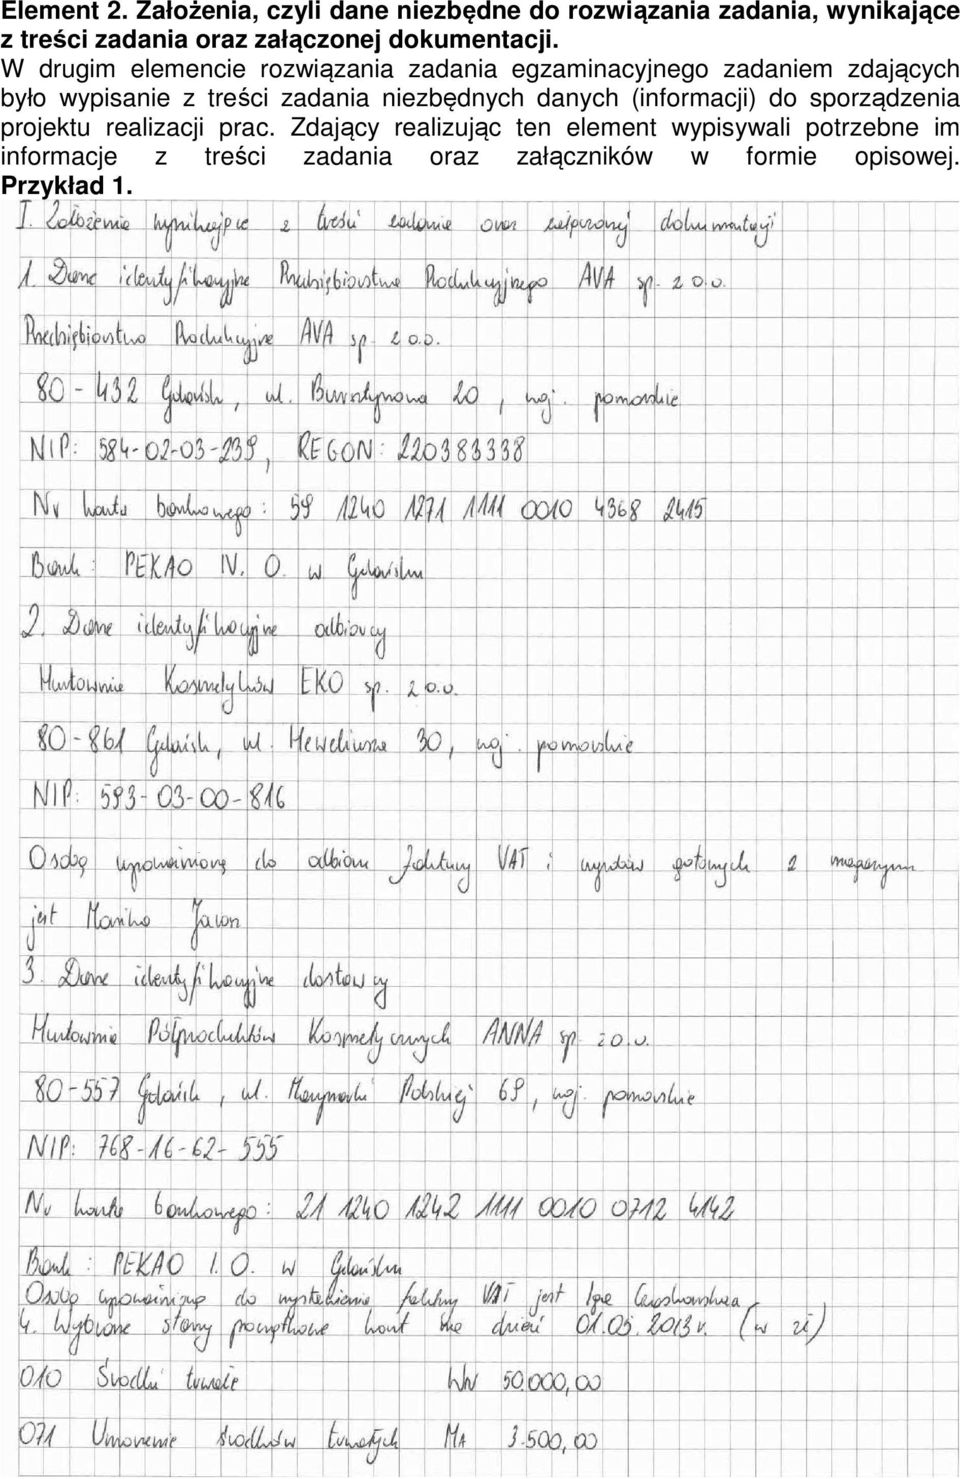 Element 2. Założenia, czyli dane niezbędne do rozwiązania zadania, wynikające
z treści zadania oraz załączonej dokumentacji.
W drugim elemencie rozwiązania zadania egzaminacyjnego zadaniem zdających
było wypisanie z treści zadania niezbędnych danych (informacji) do sporządzenia
projektu realizacji prac. Zdający realizując ten element wypisywali potrzebne im
informacje z treści zadania oraz załączników w formie opisowej.
Przykład 1.
I. Założenia wynikające z treści zadania oraz załączonej dokumentacji
1. Dane identyfikacyjne Przedsiębiorstwa Produkcyjnego AVA sp. z o.o.
Przedsiębiorstwo Produkcyjne AVA sp. z o.o.
80-432 Gdańsk, ul. Bursztynowa 20, woj. pomorskie
NIP: 584-02-03-239, REGON: 220383338
Nr konta bankowego: 59 1240 1271 1111 0010 4368 2415
Bank: PEKAO IV. O. w Gdańsku
2. Dane identyfikacyjne odbiorcy
Hurtownia Kosmetyków EKO sp. z o.o.
80-861 Gdańsk, ul. Heweliusza 30, woj. pomorskie
NIP: 593-03-00-816
Osobą upoważnioną do odbioru faktury VAT i wyrobów gotowych z magazynu
jest Marika Jawor
3. Dane identyfikacyjne dostawcy
Hurtownia Półproduktów Kosmetycznych ANNA sp. z o.o.
80-557 Gdańsk, ul. Marynarki Polskiej 69, woj. pomorskie
NIP: 768-16-62-555
Nr konta bankowego: 21 1240 1242 1111 0010 0712 4142
Bank: PEKAO I. O. w Gdańsku
Osobą upoważnioną do wystawienia faktury VAT jest Iga
4. Wybrane stany początkowe kont na dzień 01.05.2013 r. (w zł)
010 Środki trwałe Wn 50.000,00
071 Umorzenie środków trwałych MA 3.500,00